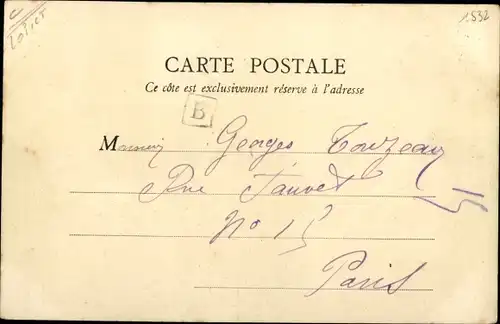 Loiret
1532
CARTE POSTALE
Ce côte est exclusivement réserve à l'adresse
B
Monsieur Georges Touzeau
Rue Fauvet
No 15
Paris